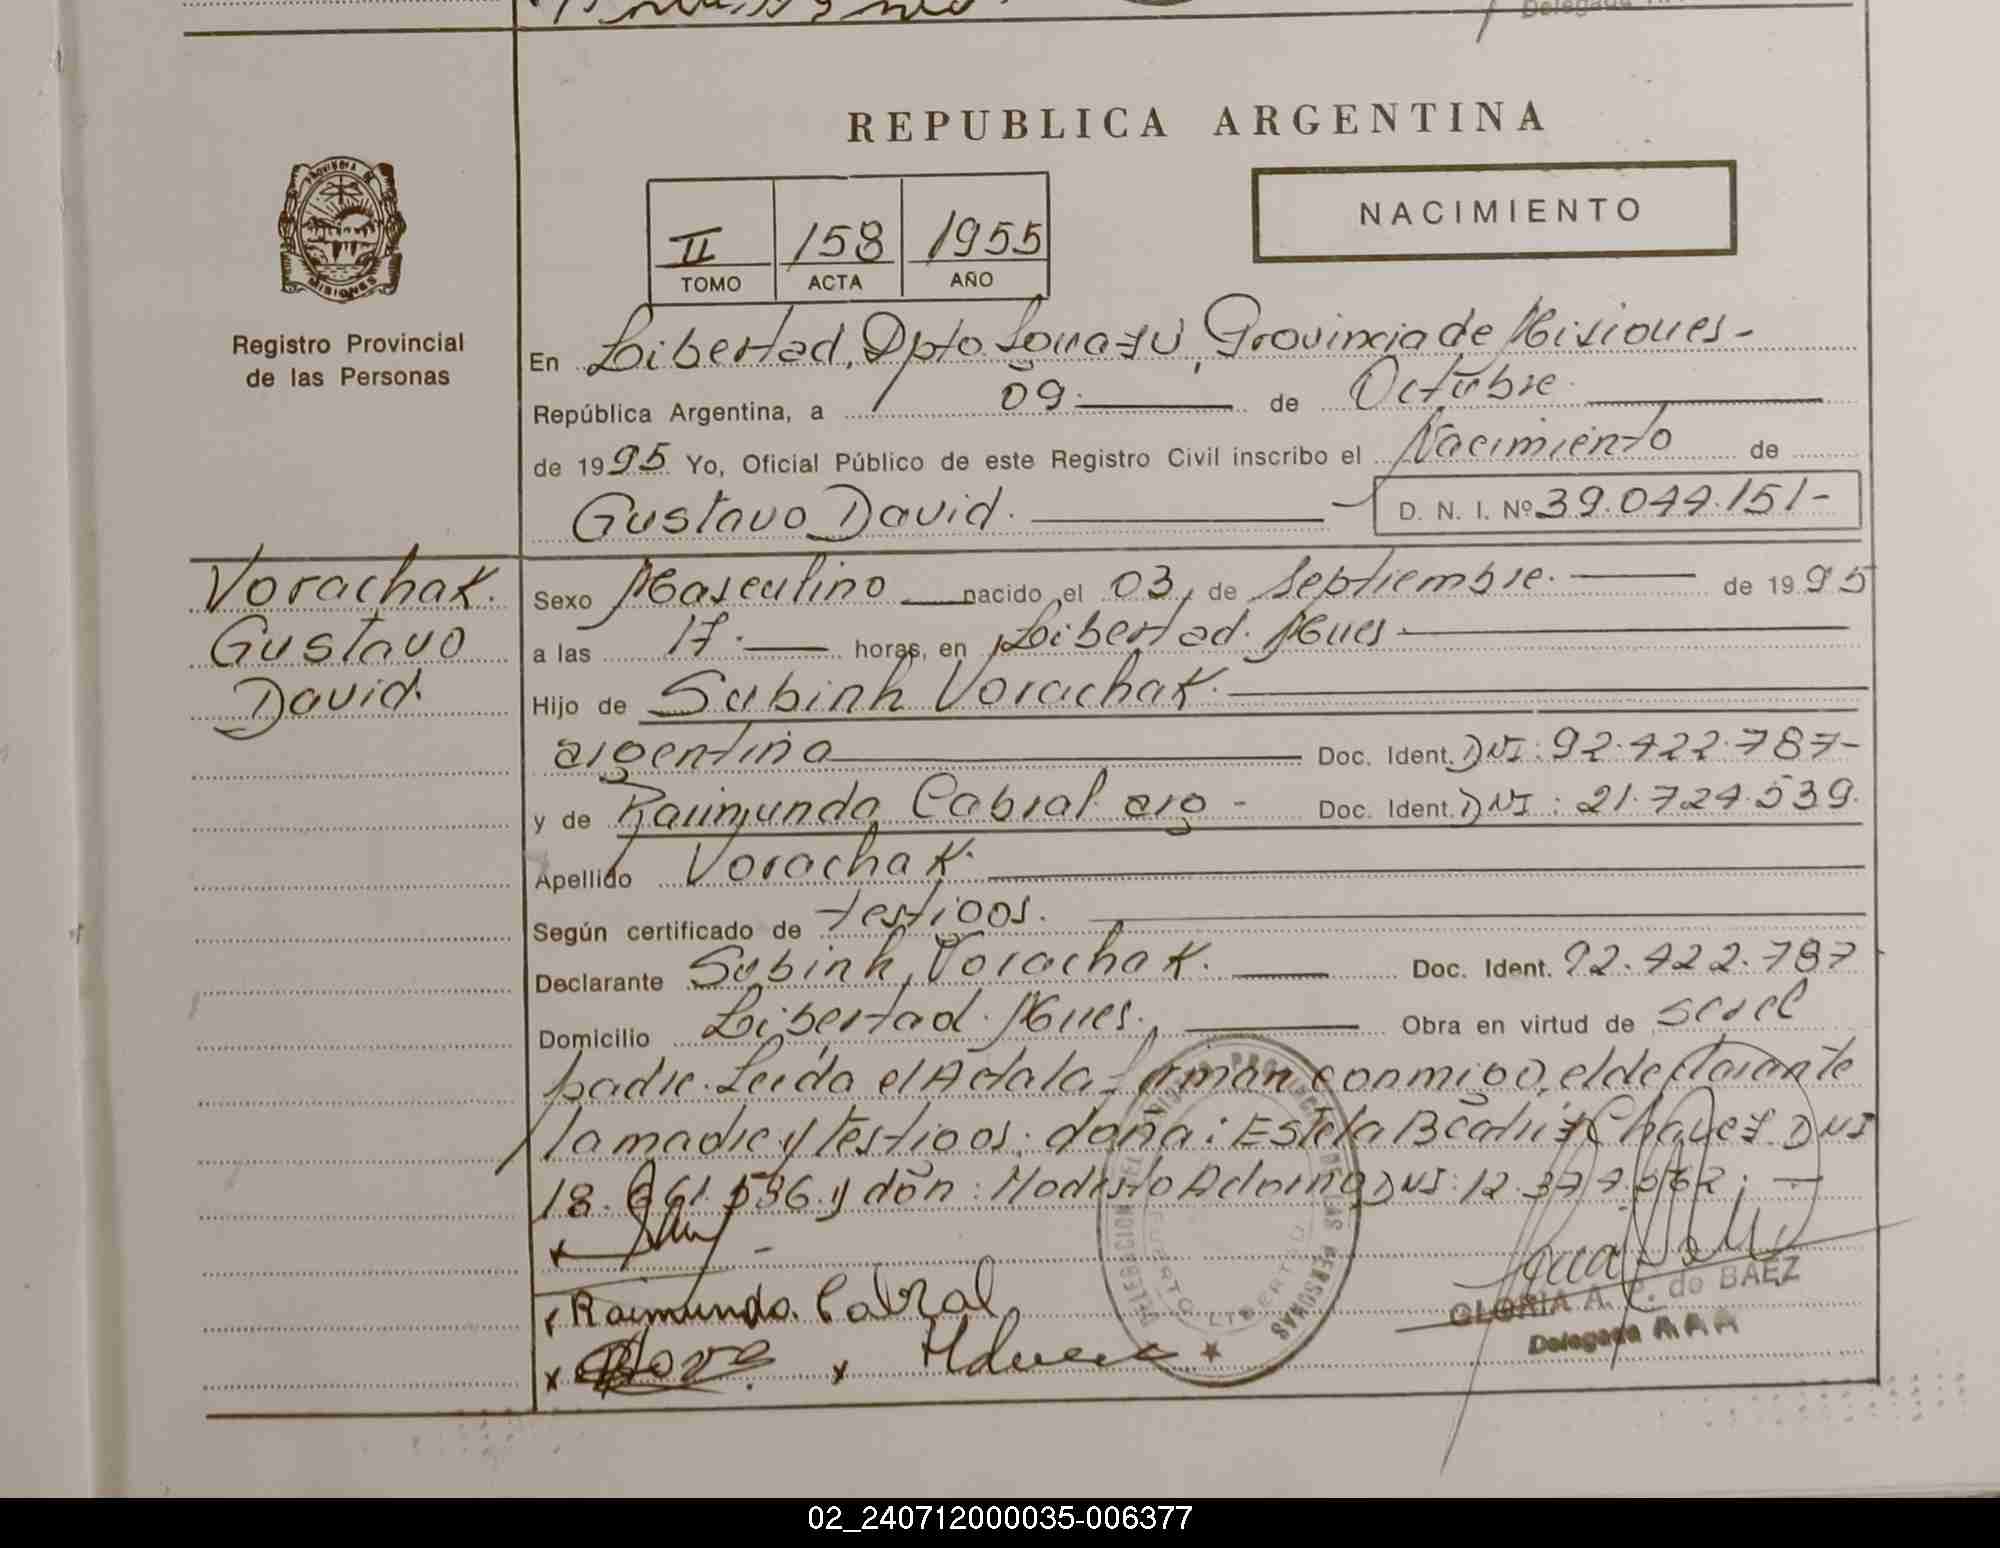 REPUBLICA ARGENTINA
PROVINCIA DE
MISIONES
Registro Provincial
de las Personas
II 158 1955
TOMO ACTA AÑO
NACIMIENTO
En Libertad, Dpto Iguazú, Provincia de Misiones-
República Argentina, a 09. de Octubre.
de 1995 Yo, Oficial Público de este Registro Civil inscribo el Nacimiento de
Gustavo David. D. N. I. Nº 39.044.151-
Vorachak.
Gustavo
David.
Sexo Masculino nacido el 03, de Septiembre. de 1995
a las 17. horas, en Libertad. Mnes.
Hijo de Subinh Vorachak.
argentina Doc. Ident. DNI: 92.422.787-
y de Raimunda Cabral. arg - Doc. Ident. DNI: 21.724.539.
Apellido Vorachak.
Según certificado de testigos.
Declarante Subinh, Vorachak. Doc. Ident. 92.422.787
Domicilio Libertad. Mnes. Obra en virtud de ser el
padre. Leída el Acta la firman conmigo, el declarante
la madre y testigos: doña: Estela Beatriz Chavez DNI
18. 536. y don: Modesto DNI: 12.
Raimunda. Cabral
DELEGACION DEL REGISTRO PROVINCIAL DE LAS PERSONAS
PUERTO LIBERTAD
GLORIA A. P. de BAEZ
Delegada AAA
02_240712000035-006377